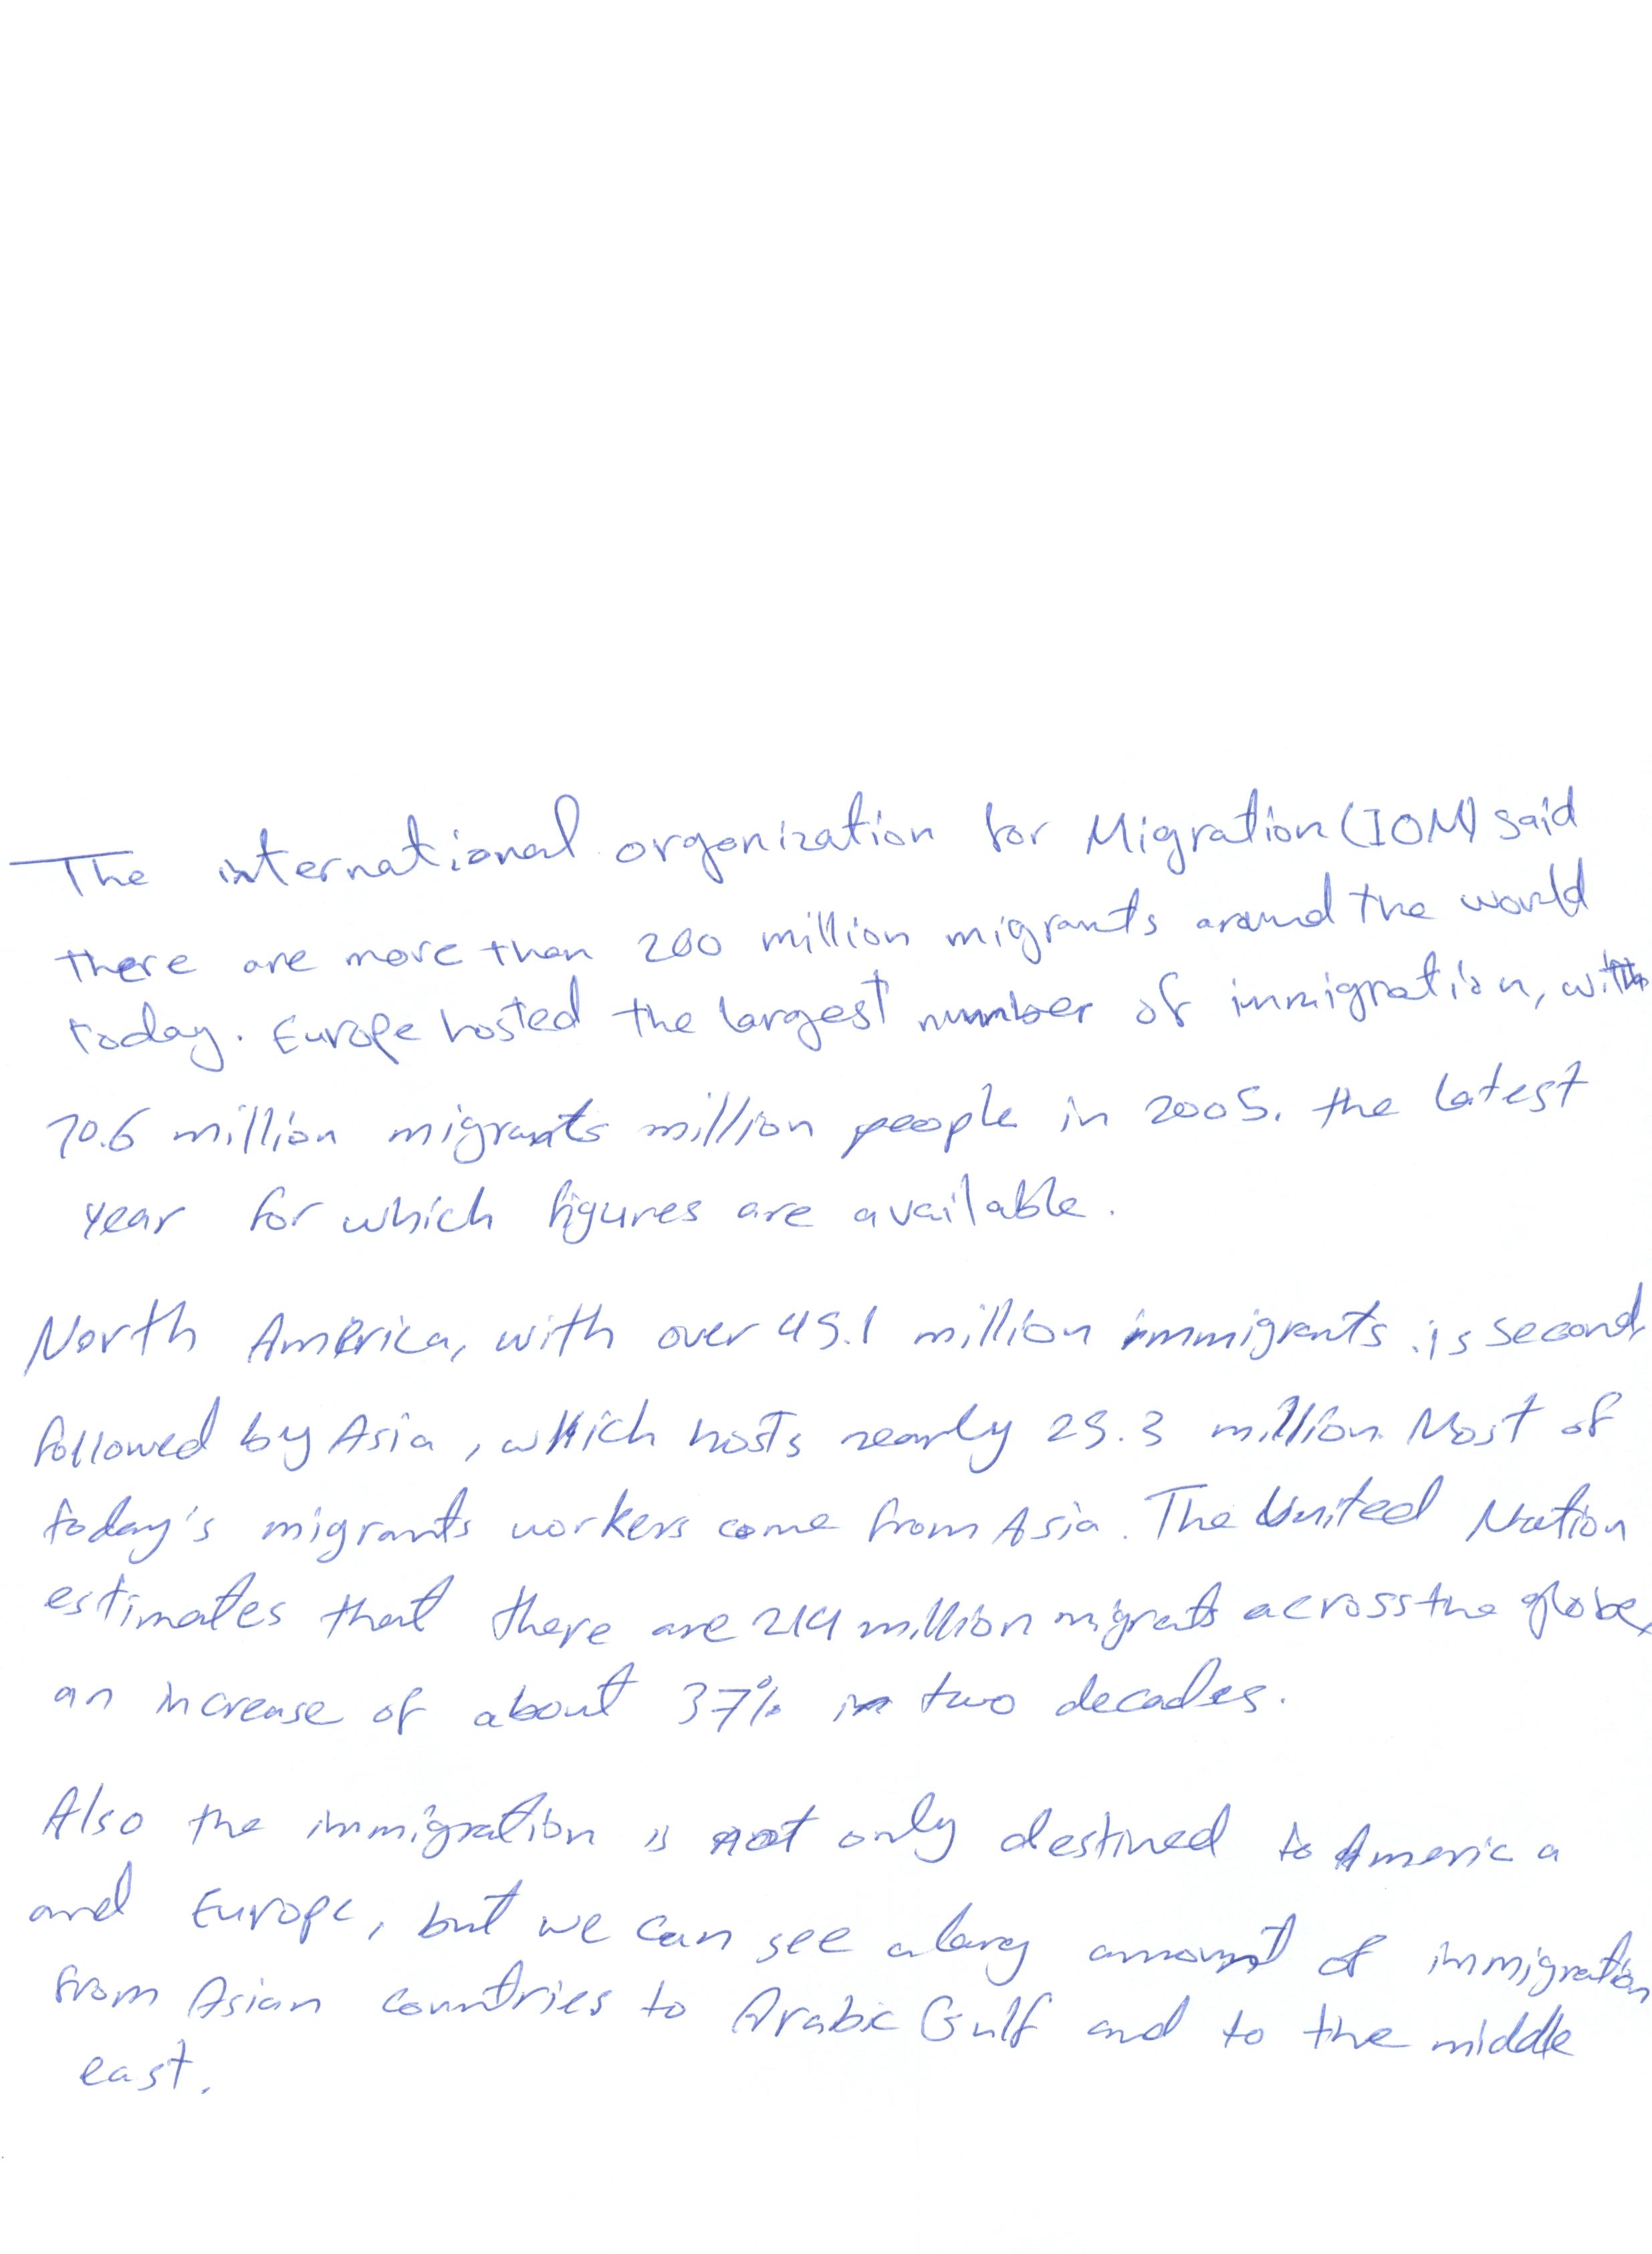 The international organization for Migration (IOM) said
there are more than 200 million migrants around the world
today. Europe hosted the largest number of immigration, with
70.6 million migrants million people in 2005. the latest
year for which figures are available.
North America, with over 45.1 million immigrants .is second
followed by Asia, which hosts nearly 25.3 million. Most of
today's migrants workers come from Asia. The United Nation
estimates that there are 214 million migrats across the globe,
an increase of about 37% in two decades.
Also the immigration is not only destined to America
and Europe, but we can see a larg amount of immigration
from Asian countries to Arabic Gulf and to the middle
east.